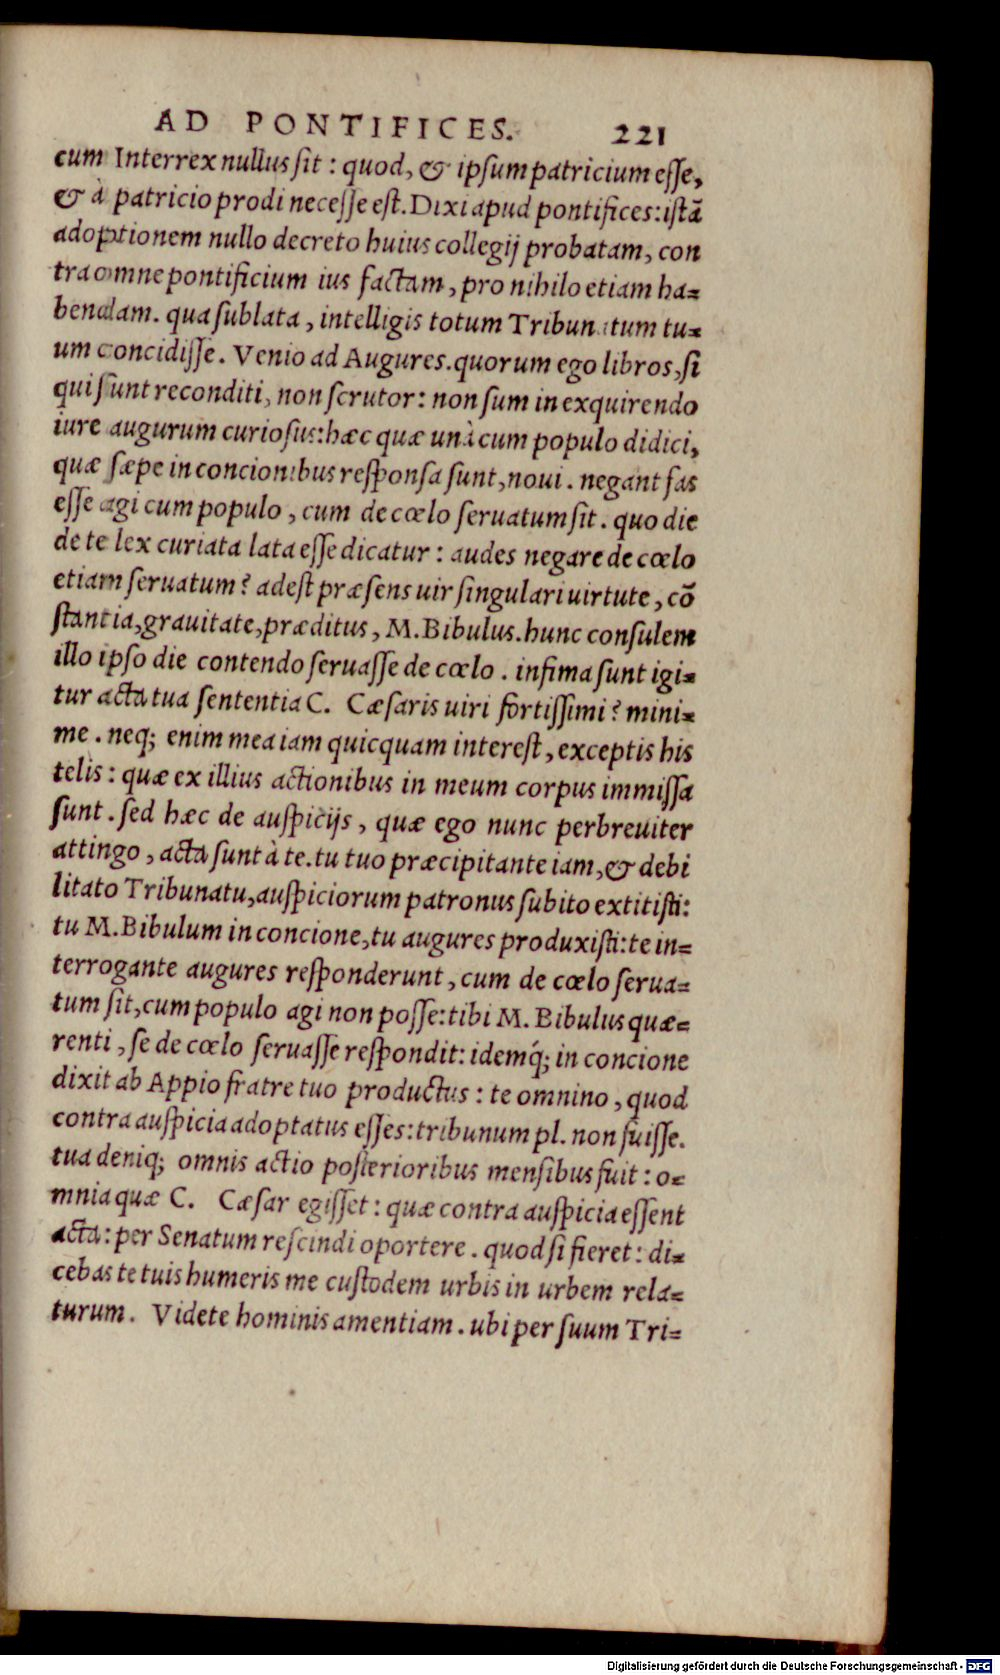 AD PONTIFICES. 221
cum Interrex nullus sit : quod, & ipsum patricium esse,
& à patricio prodi necesse est. Dixi apud pontifices: istã
adoptionem nullo decreto huius collegij probatam, con
tra omne pontificium ius factam, pro nihilo etiam ha=
bendam. qua sublata, intelligis totum Tribunatum tu=
um concidisse. Venio ad Augures. quorum ego libros, si
qui sunt reconditi, non scrutor: non sum in exquirendo
iure augurum curiosus: hæc quæ unà cum populo didici,
quæ sæpe in concionibus responsa sunt, noui. negant fas
esse agi cum populo, cum de cœlo seruatum sit. quo die
de te lex curiata lata esse dicatur: audes negare de cœlo
etiam seruatum? adest præsens uir singulari uirtute, cõ
stantia, grauitate, præditus, M. Bibulus. hunc consulem
illo ipso die contendo seruasse de cœlo. infima sunt igi=
tur acta tua sententia C. Cæsaris uiri fortissimi? mini=
me. neq; enim mea iam quicquam interest, exceptis his
telis: quæ ex illius actionibus in meum corpus immissa
sunt. sed hæc de auspicijs, quæ ego nunc perbreuiter
attingo, acta sunt à te. tu tuo præcipitante iam, & debi
litato Tribunatu, auspiciorum patronus subito extitisti:
tu M. Bibulum in concione, tu augures produxisti: te in=
terrogante augures responderunt, cum de cœlo serua=
tum sit, cum populo agi non posse: tibi M. Bibulus quæ=
renti, se de cœlo seruasse respondit: idemq́; in concione
dixit ab Appio fratre tuo productus: te omnino, quod
contra auspicia adoptatus esses: tribunum pl. non fuisse.
tua deniq; omnis actio posterioribus mensibus fuit: o=
mnia quæ C. Cæsar egisset: quæ contra auspicia essent
acta: per Senatum rescindi oportere. quod si fieret: di=
cebas te tuis humeris me custodem urbis in urbem rela=
turum. Videte hominis amentiam. ubi per suum Tri=
Digitalisierung gefördert durch die Deutsche Forschungsgemeinschaft - DFG